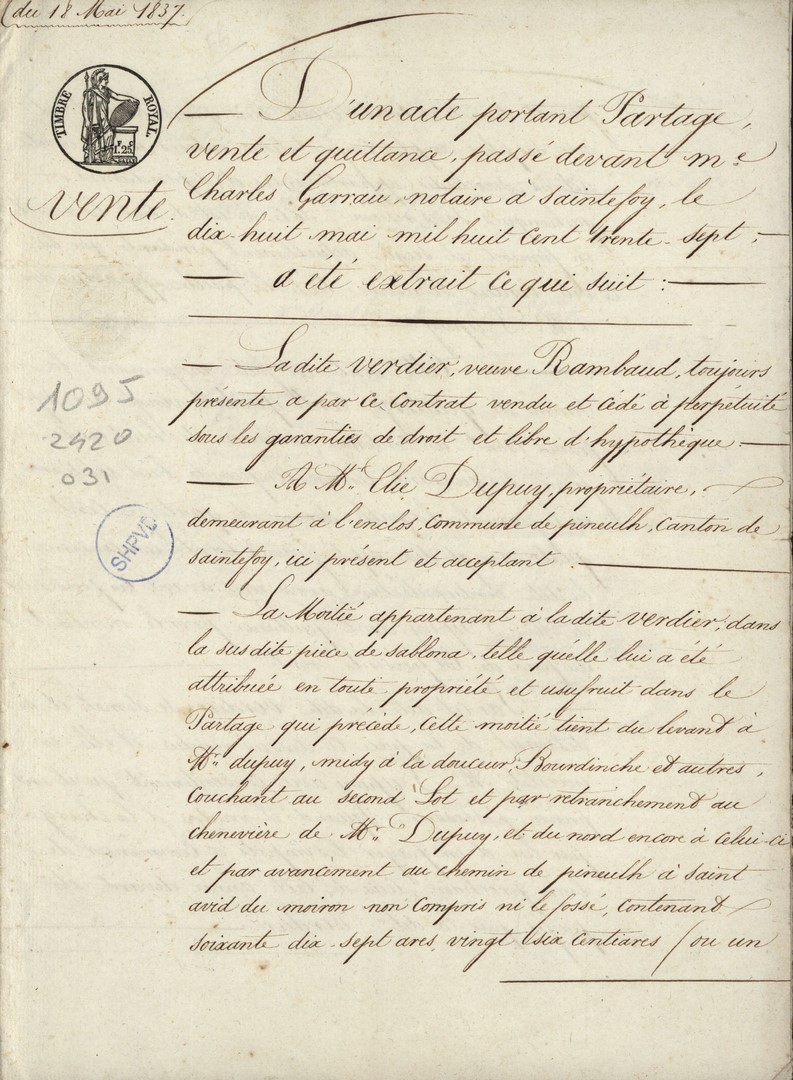 (du 18 Mai 1837.
TIMBRE ROYAL.
F. C.
1. 25.
vente.
— D'un acte portant Partage,
vente et quittance, passé devant me
Charles Garrau, notaire à saintefoy, le
dix-huit mai mil huit cent trente-sept;—
— a été extrait ce qui suit:—
— La dite verdier, veuve Rambaud, toujours
présente a par ce contrat vendu et cédé à perpétuité
sous les garanties de droit et libre d'hypothèque:—
— A Mr. Elie Dupuy, propriétaire,
demeurant à l'enclos, commune de pineulh, canton de
saintefoy, ici présent et acceptant.—
— La Moitié appartenant à la dite verdier, dans
la susdite pièce de sablona, telle qu'elle lui a été
attribuée en toute propriété et usufruit dans le
Partage qui précède, cette moitié tient du levant à
Mr. dupuy, midy à la douceur, Bourdinche et autres,
couchant au second Lot et par retranchement au
chenevière de Mr. Dupuy, et du nord encore à celui-ci
et par avancement au chemin de pineulh à saint
avid du moiron non compris ni le fossé, contenant
soixante dix-sept ares, vingt six centiares (ou un
1095
2420
031
SHPVD